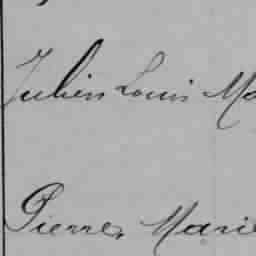 Julien Louis Ma
Pierre Marie